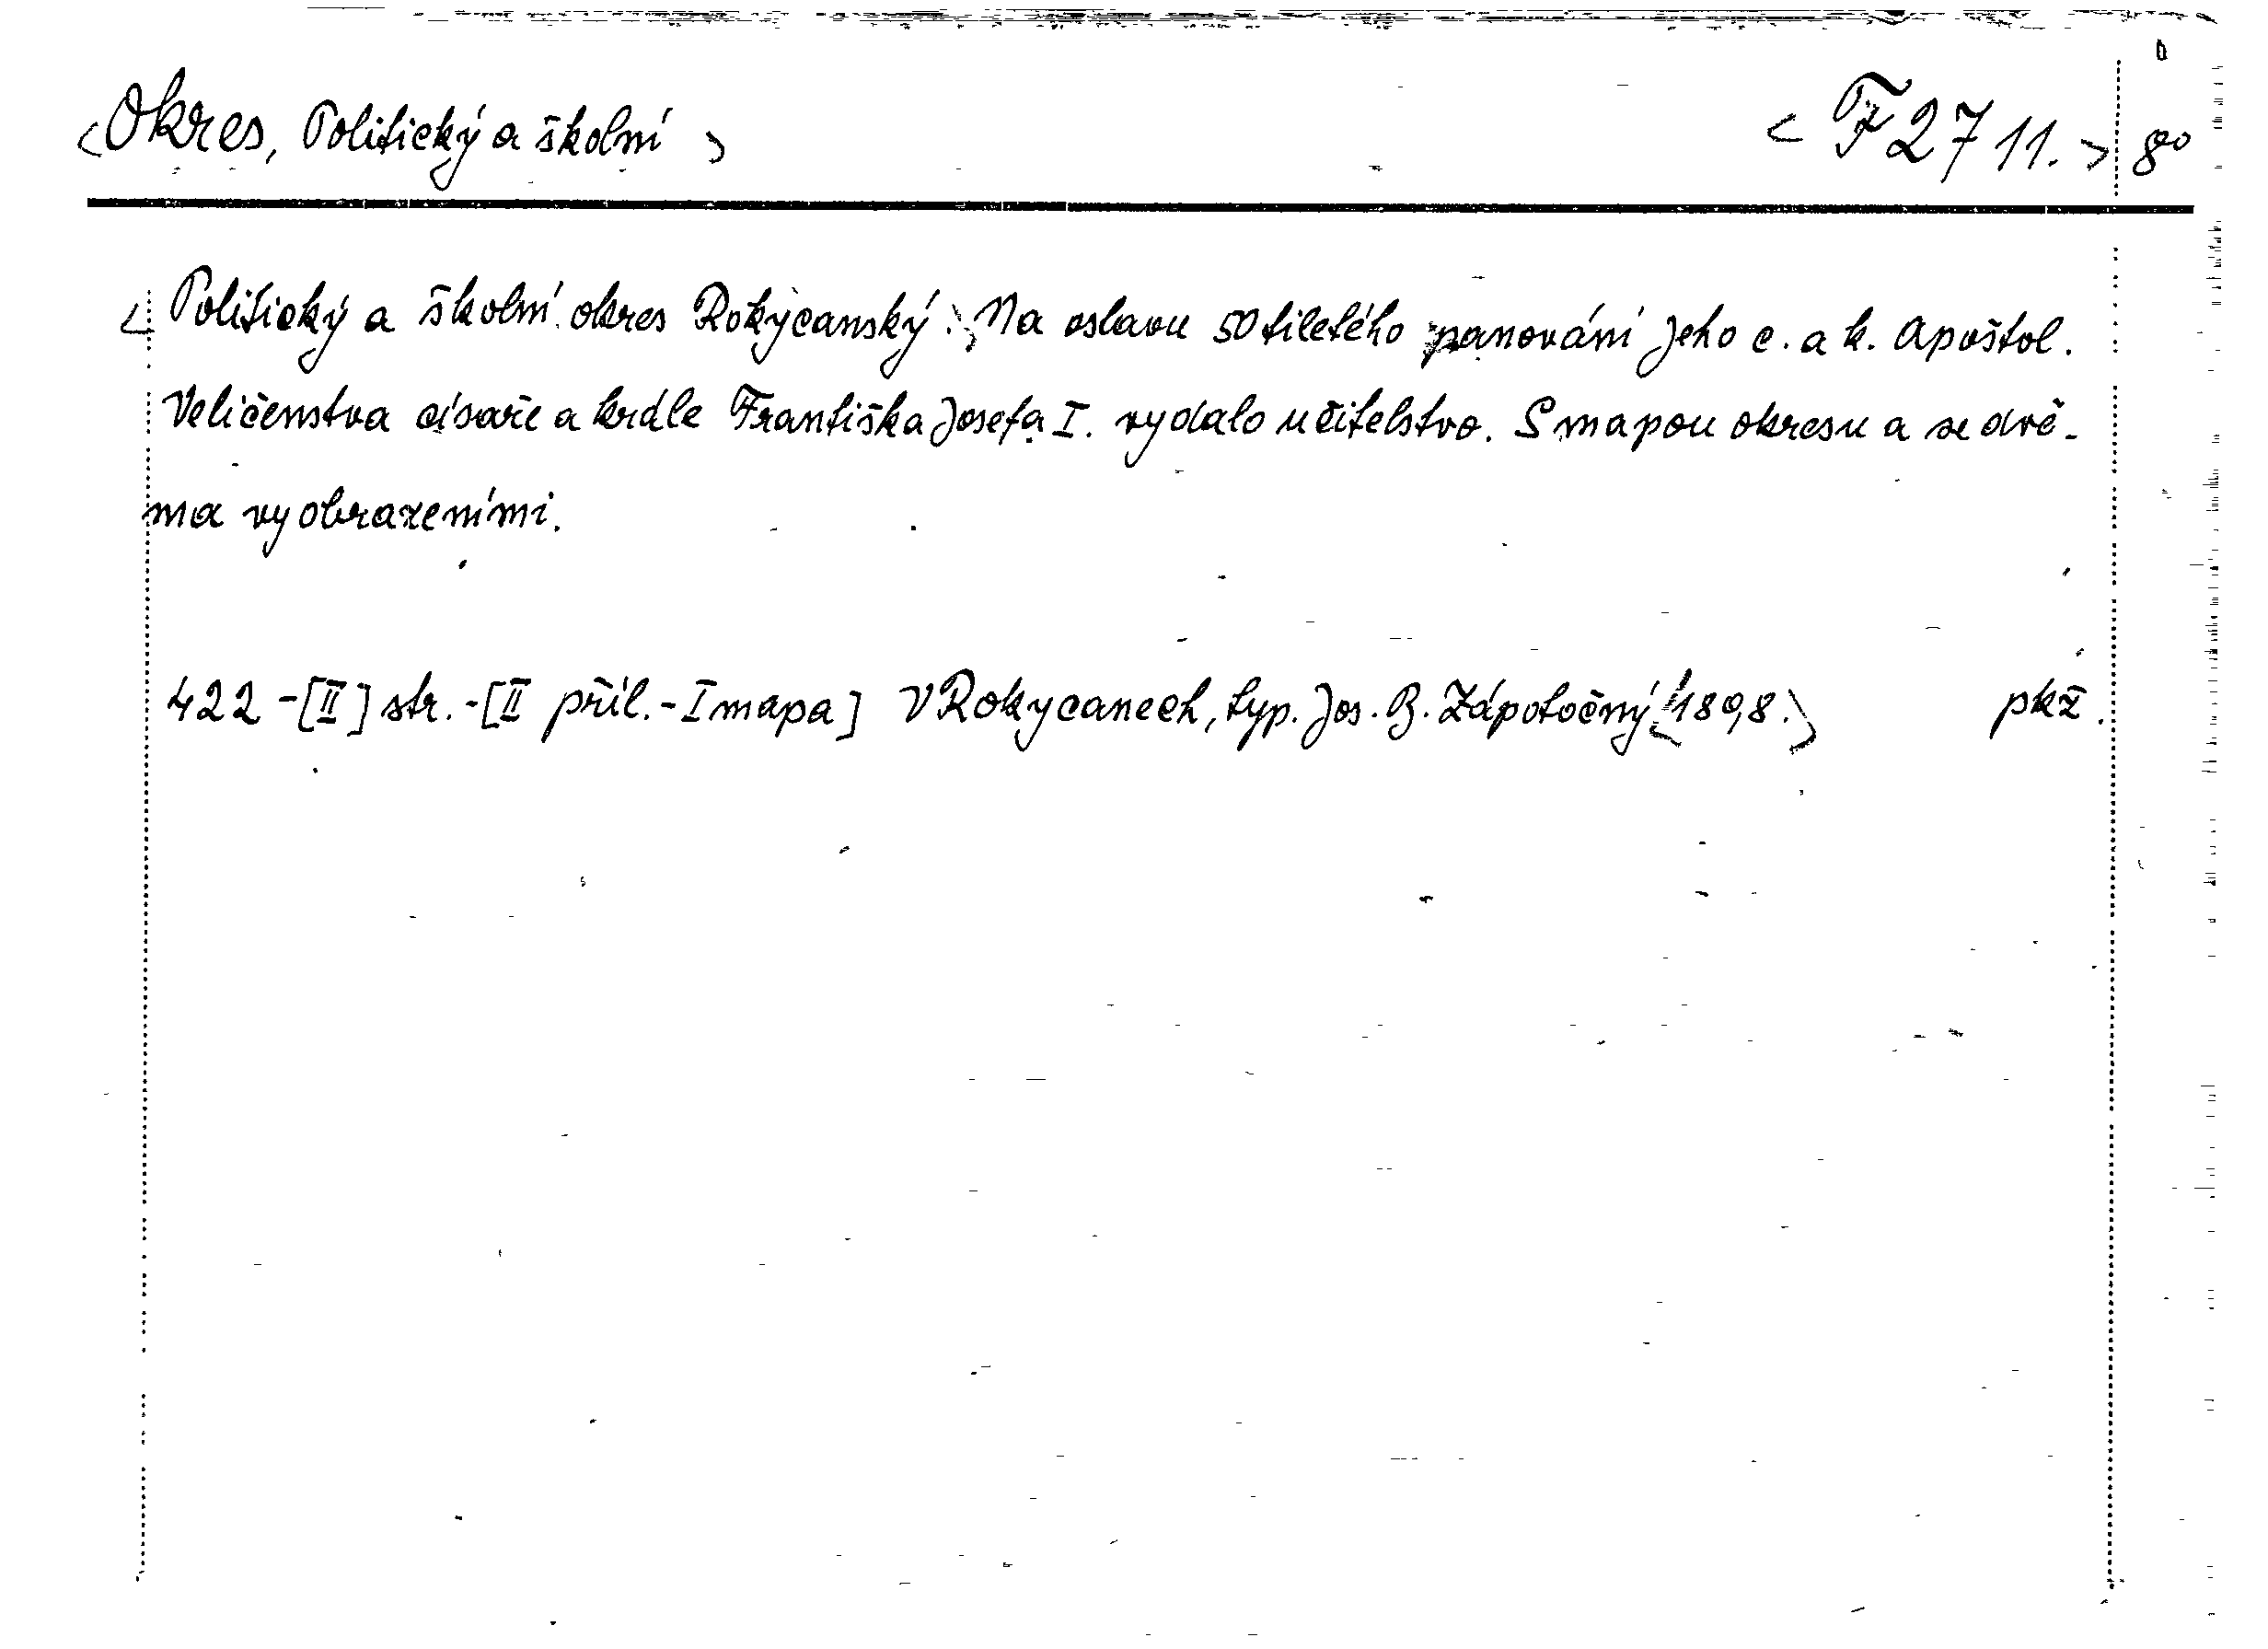 <Okres, Politický a školní> <F 2711.> 8°
<Politický a školní okres Rokycanský.> Na oslavu 50tiletého panování Jeho c. a k. apoštol.
Veličenstva císaře a krále Františka Josefa I. vydalo učitelstvo. S mapou okresu a se dvě-
ma vyobrazeními.
422 -[II] str. -[II příl. - I mapa] V Rokycanech, typ. Jos. B. Zápotočný <1898.> pkž.